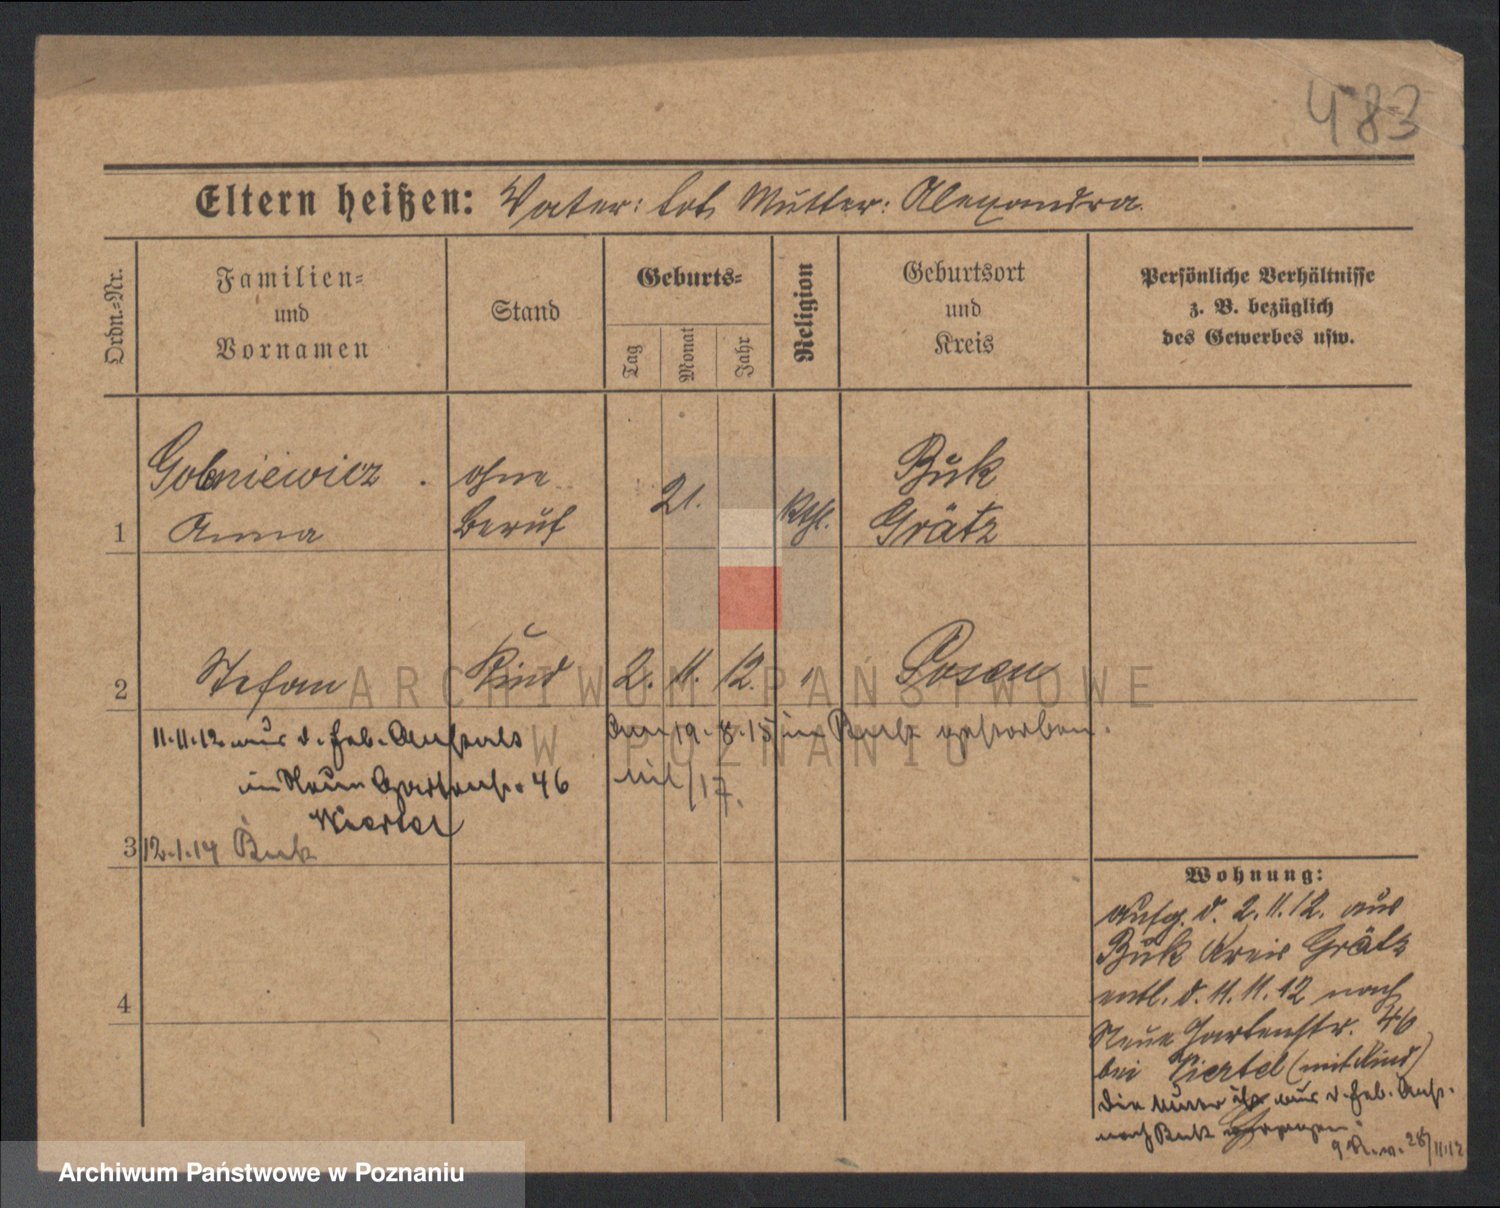 483
Eltern heißen: Vater: tot, Mutter: Alexandra.
Ordn.-Nr.
Familien- und Vornamen
Stand
Geburts-
Tag
Monat
Jahr
Religion
Geburtsort und Kreis
Persönliche Verhältnisse z. B. bezüglich des Gewerbes usw.
1
Anna
ohne Beruf
21.
kth.
Buk Grätz
2
Stefan
Kind
2. 11. 12.
"
Posen
11.11.12. aus d. Heb. Anstalt
in Neue Gartenstr. 46
Viertel
3
12.1.14 Buk
Am 19.8.15 in Buk gestorben.
/17.
4
Wohnung:
aufg. d. 2.11.12. aus
Buk Kreis Grätz
entl. d. 11.11.12 nach
Neue Gartenstr. 46
bei Viertel (mit Kind)
Die aus d. Heb. Anst.
nach Buk
28/11.12
ARCHIWUM PAŃSTWOWE
W POZNANIU
Archiwum Państwowe w Poznaniu